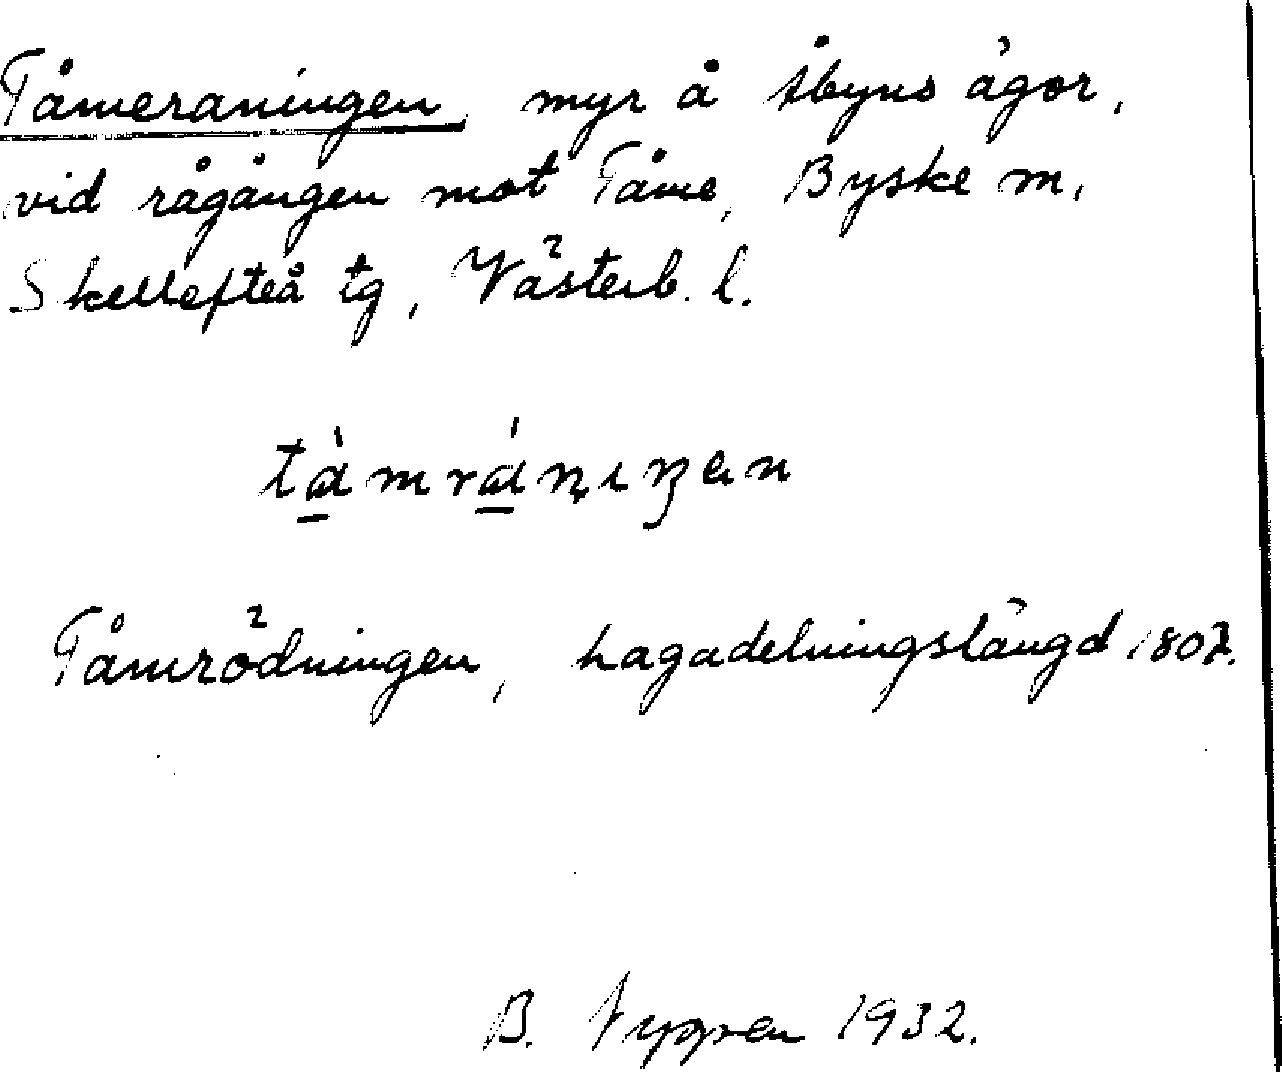 Tåmeraningen, myr å Åbyns ägor,
vid rågången mot Tåme, Byske m.
Skellefteå tg, Västerb. l.
tàmránıŋen
Tåmrödningen, hagadelningslängd 1807.
B. 1932.